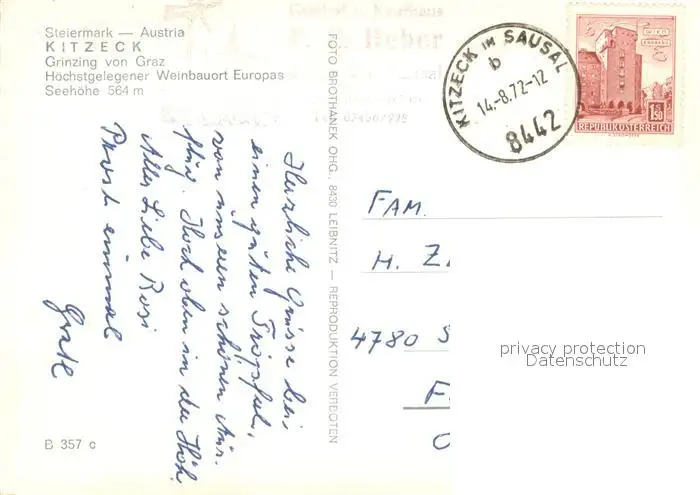 Steiermark — Austria
KITZECK
Grinzing von Graz
Höchstgelegener Weinbauort Europas
Seehöhe 564 m
KITZECK IM SAUSAL
b
14.-8.72-12
8442
WIEN
ERDBERG
1.50
REPUBLIK ÖSTERREICH
FOTO BROTHANEK OHG., 8430 LEIBNITZ — REPRODUKTION VERBOTEN
Herzliche Grüsse bei
einen guten Tröpferl,
von unseren schönen Aus-
flug. Hoch oben in der Höh.
Alles Liebe Rosi
Prost einmal
FAM.
H. Z.
4780 S
F
privacy protection
Datenschutz
B 357 c